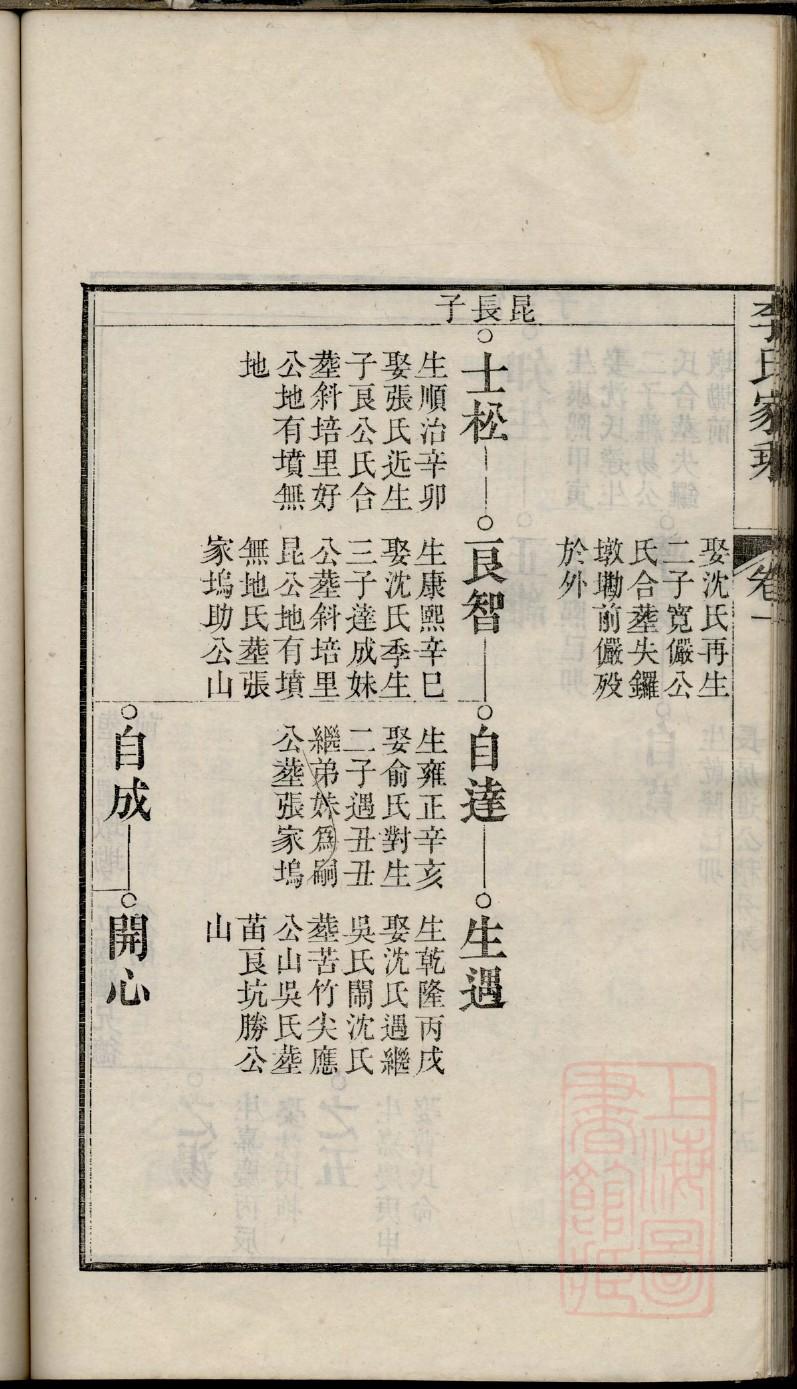 李氏家乘
卷一
娶沈氏再生
二子寬儼公
氏合塟失鑼
墩墈前儼歿
於外
昆長子
士松
生順治辛卯
娶張氏近生
子良公氏合
塟斜培里好
公地有墳無
地
良智
生康熙辛巳
娶沈氏季生
三子達成妹
公塟斜培里
昆公地有墳
無地氏塟張
家塢助公山
自達
生雍正辛亥
娶俞氏對生
二子遇丑丑
繼弟妹爲嗣
公塟張家塢
生遇
生乾隆丙戌
娶沈氏遇繼
吳氏鬧沈氏
塟苦竹尖應
公山吳氏塟
苗良坑勝公
山
自成
開心
上海圖
書館藏